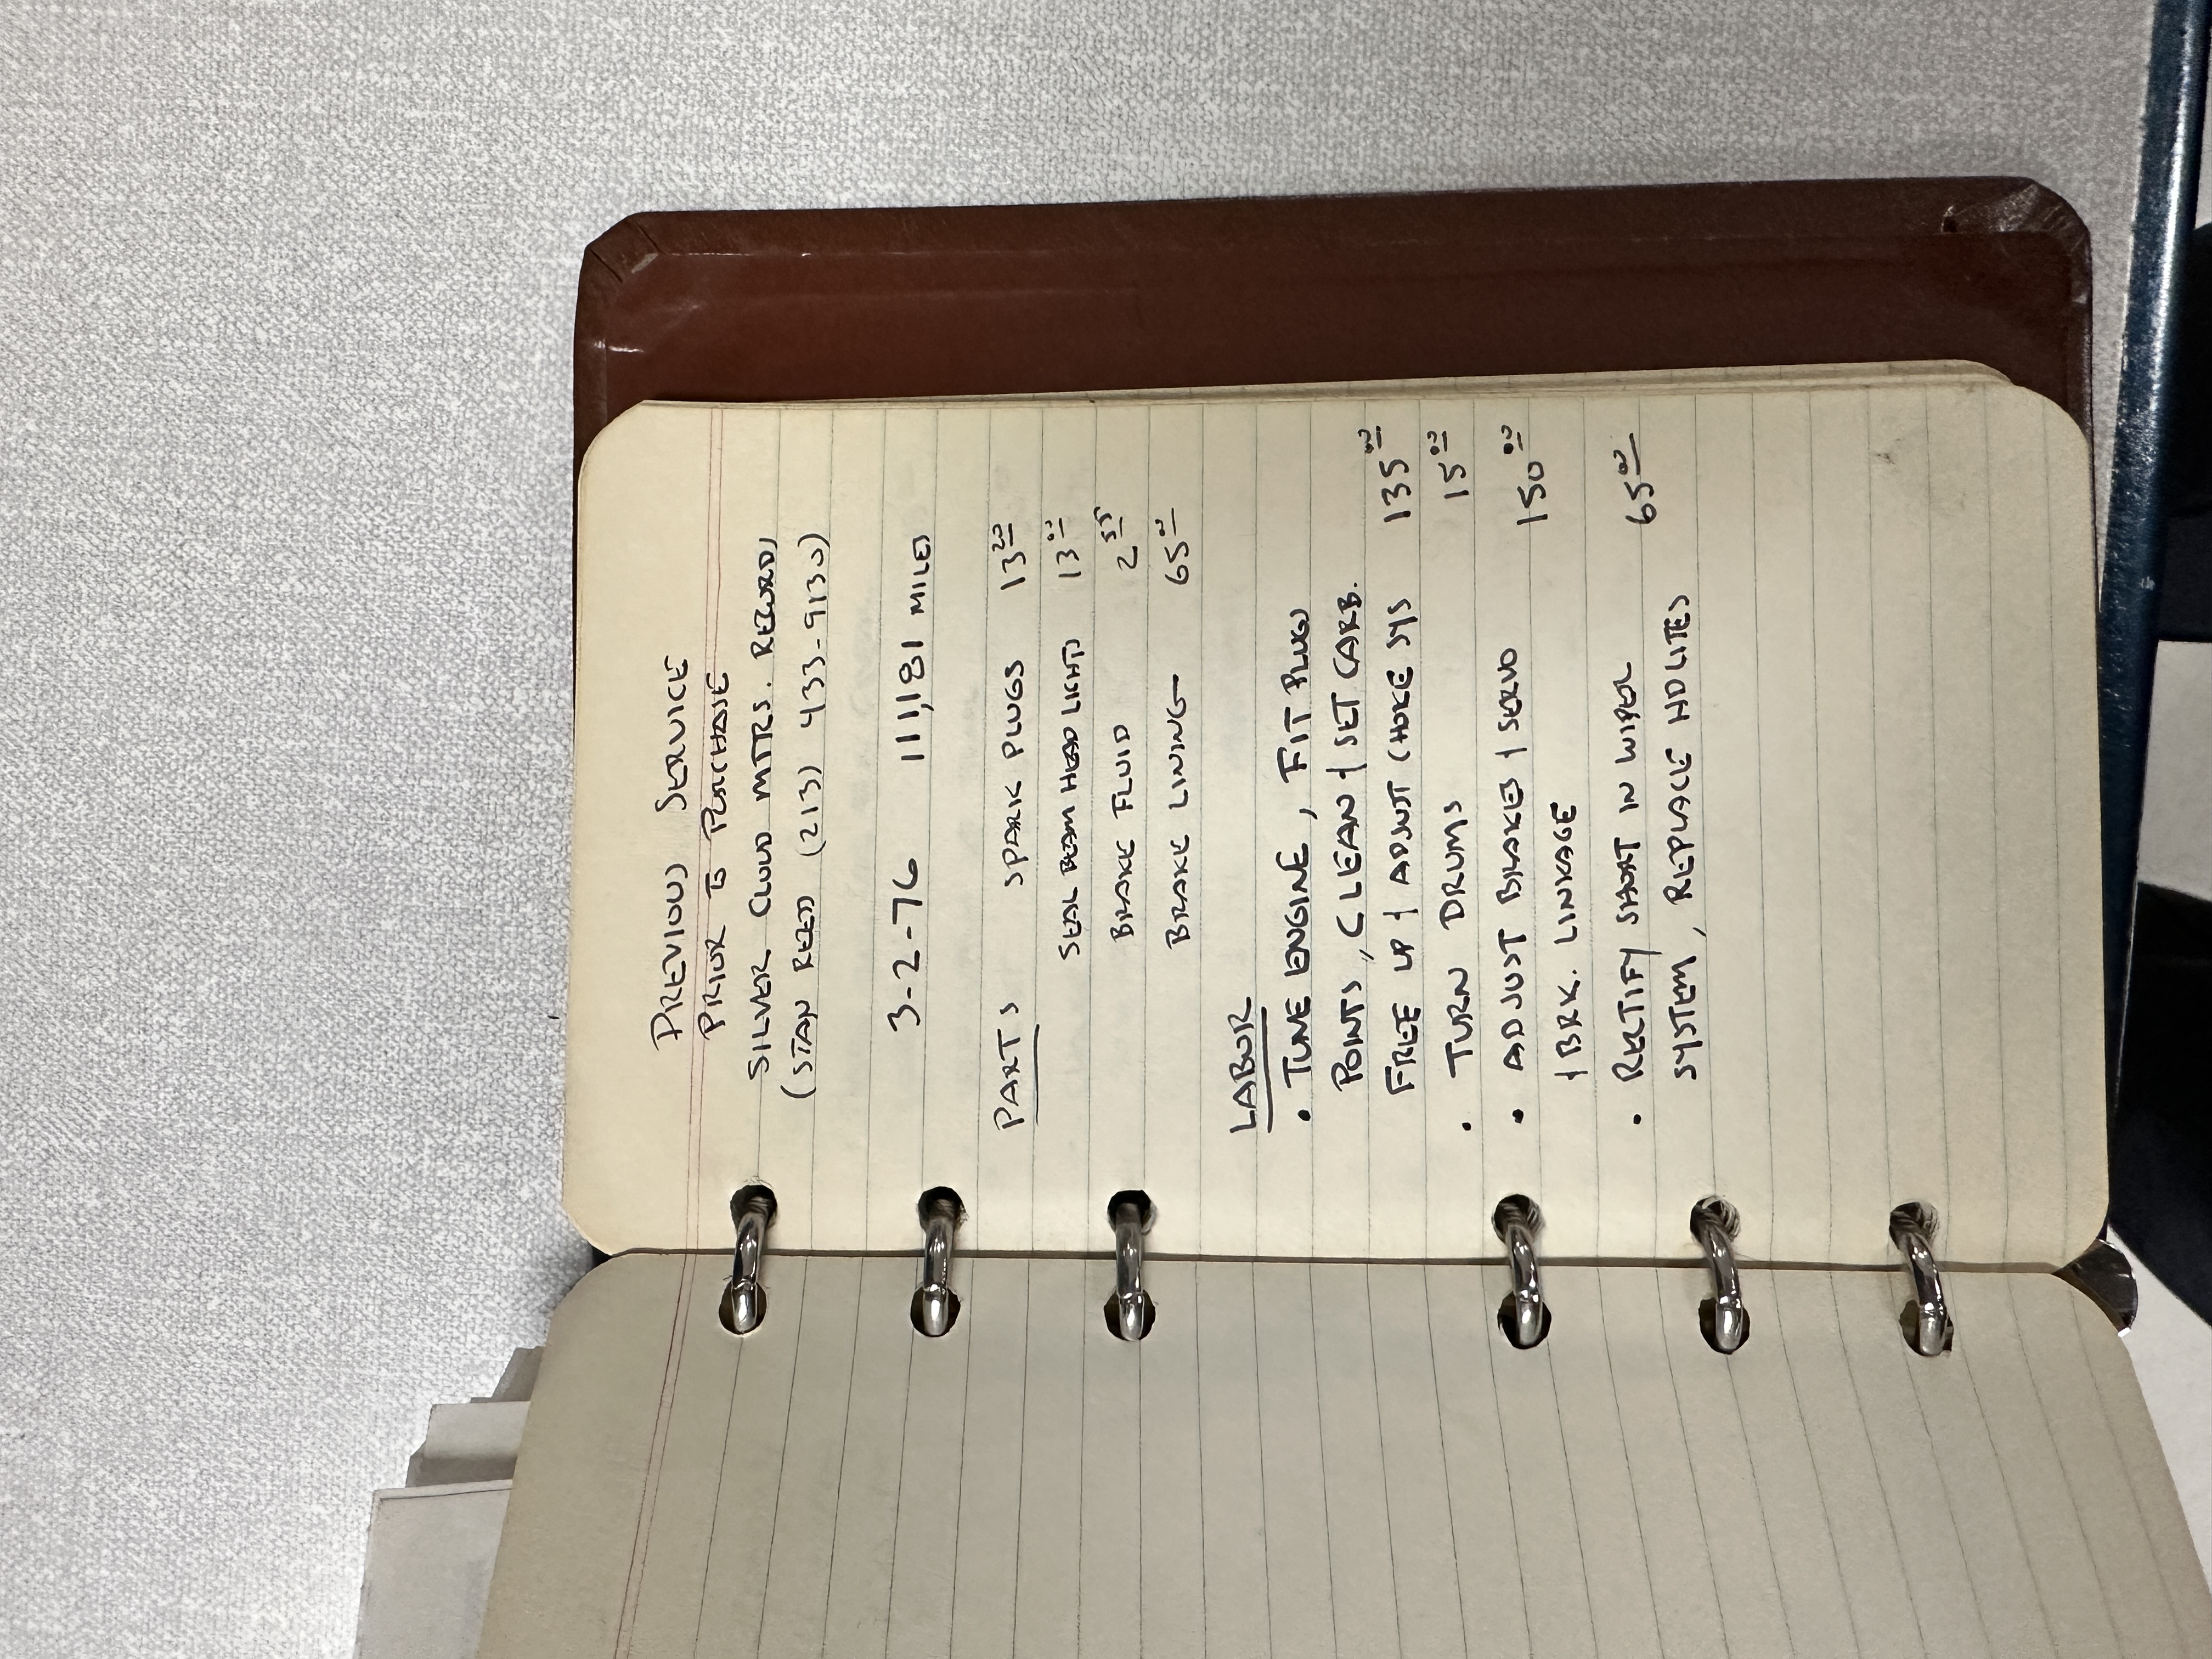 PREVIOUS SERVICE
PRIOR TO PURCHASE
SILVER CLOUD MTRS. RECORDS
(STAN REED (213) 433-9130)
3-2-76 111,181 MILES
PARTS SPARK PLUGS 13.20
SEAL BEAM HEAD LIGHTS 13.00
BRAKE FLUID 2.55
BRAKE LINING 65.00
LABOR
• TUNE ENGINE, FIT PLUGS
POINTS, CLEAN & SET CARB.
FREE UP & ADJUST CHOKE SYS 135.00
• TURN DRUMS 15.00
• ADJUST BRAKES & SERVO 150.00
& BRK. LINKAGE
• RECTIFY SHORT IN WIPER 65.00
SYSTEM, REPLACE HDLITES